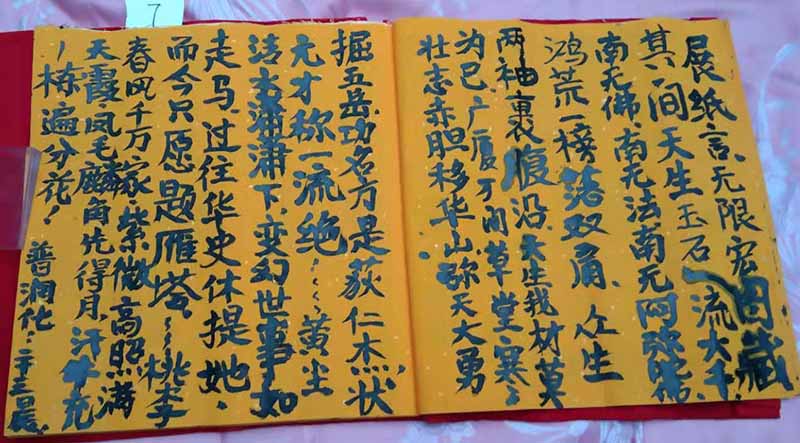 7
展纸言、无限宏
其间天生玉石流大千
南无佛、南无法南无阿弥
鸿荒一榜落双角、众生
两袖裹腹沿、天生我材莫
为己、广厦万间草堂寒
壮志赤胆移华山弥天大勇
掘五岳、功名方是荻仁杰、状
元才称一流绝~~~黄尘
潇下、变幻世事如
走马、过往华史休提她、
而今只愿题雁塔、~~~桃李
春风千万家、紫微高照满
天霞、凤毛麟角先得月、汗牛充
栋遍分花！ 普润化、二十三晨